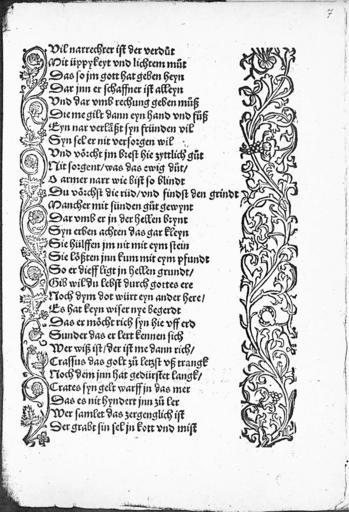 7
Vil narrechter ist der verdůt
Mit üppykeyt vnd lichtem můt
Das so jm gott hat geben heyn
Dar jnn er schaffner ist alleyn
Vnd dar vmb rechung geben můß
Die me gilt dann eyn hand vnd fůß
Eyn nar verlåßt syn fründen vil
Syn sel er nit versorgen wil
Vnd vörcht jm brest hie zyttlich gůt
Nit sorgent / was das ewig důt /
O armer narr wie bist so blindt
Du vörchst die rüd / vnd findst den grindt
Mancher mit sünden gůt gewynt
Dar vmb er jn der hellen brynt
Syn erben achten das gar kleyn
Sie hülffen jm nit mit eym steyn
Sie lößten jnn kum mit eym pfundt
So er dieff ligt jn hellen grundt /
Gib wil du lebst durch gottes ere
Noch dym dot würt eyn ander here /
Es hat keyn wiser nye begerdt
Das er möcht rich syn hie vff erd
Sunder das er lert kennen sich
Wer wiß ist / der ist me dann rich /
Crassus das golt zů letzst vß trangk
Noch dem jnn hat gedürstet langk /
Crates syn gelt warff jn das mer
Das es nit hyndert jnn zů ler
Wer samlet das zergenglich ist
Der grabt sin sel jn kott vnd mist